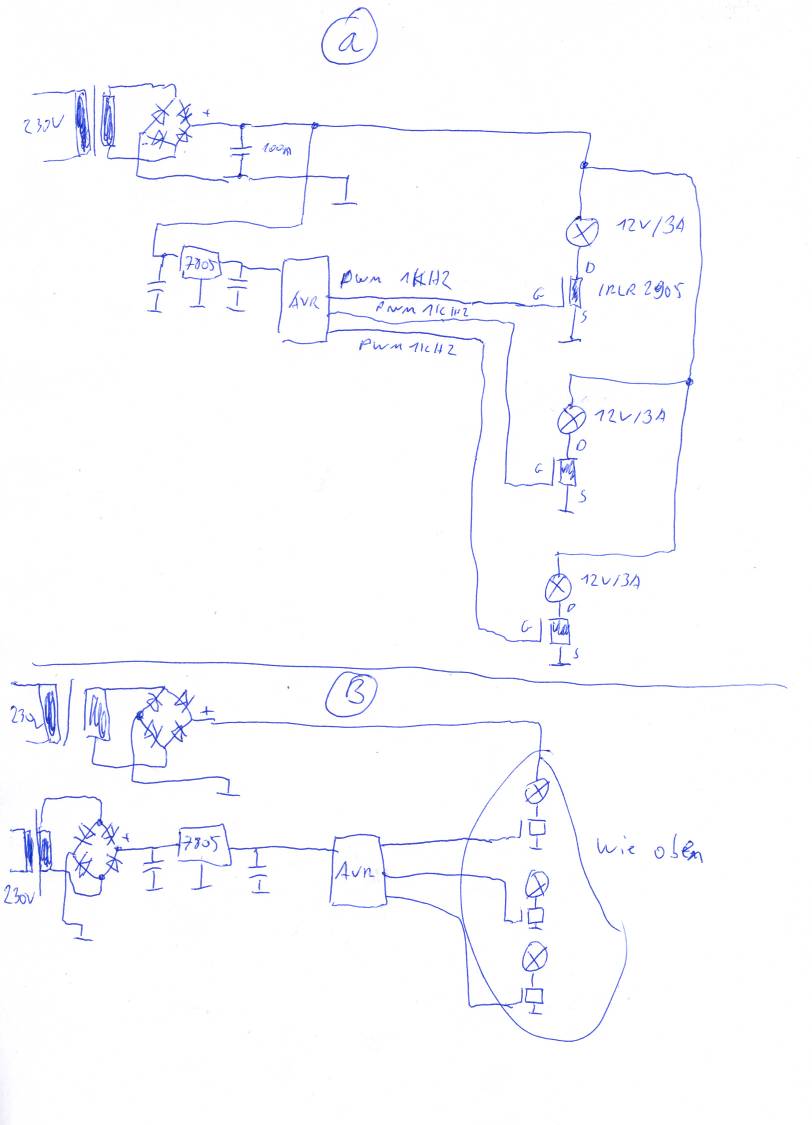 a
230V
+
100n
12V/3A
7805
PWM 1KHZ
D
G
IRLR 2905
AVR
PWM 1KHZ
S
PWM 1KHZ
12V/3A
D
G
S
12V/3A
D
G
S
B
230V
+
7805
+
wie oben
AVR
230V